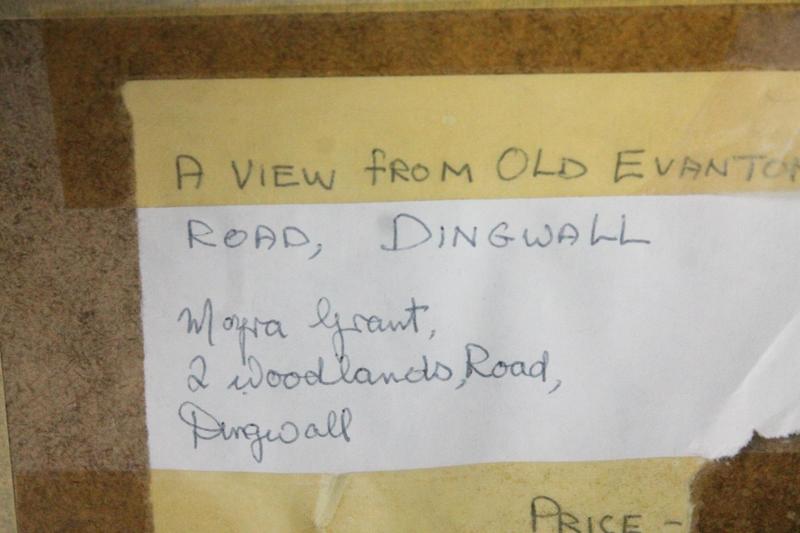 A VIEW FROM OLD EVANTON
ROAD, DINGWALL
Moyra Grant,
2 Woodlands, Road,
Dingwall
PRICE -